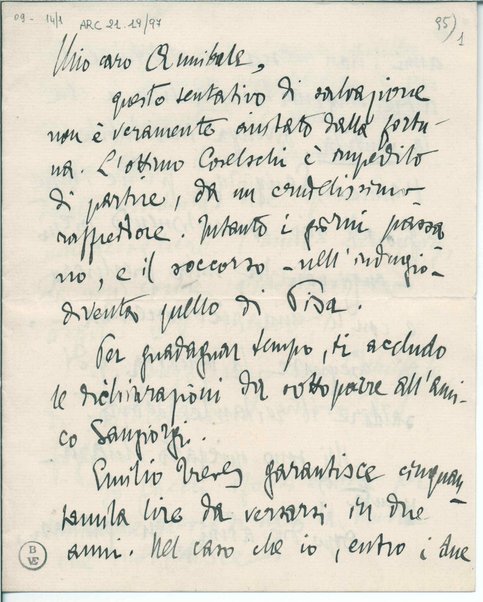 09 - 14/1 ARC 21.19/97 95) 1
Mio caro Annibale,
questo tentativo di salvazione
non è veramente aiutato dalla fortu-
na. L'ottimo Coselschi è impedito
di partire, da un crudelissimo
raffreddore. Intanto i giorni passa
no, e il soccorso - nell'indugio -
diventa quello di Pisa.
Per guadagnar tempo, ti accludo
le dichiarazioni da sottoporre all'ami-
co Sangiorgi.
Emilio Treves garantisce cinquan
tamila lire da versarsi in due
anni. Nel caso che io, entro i due
B
VE